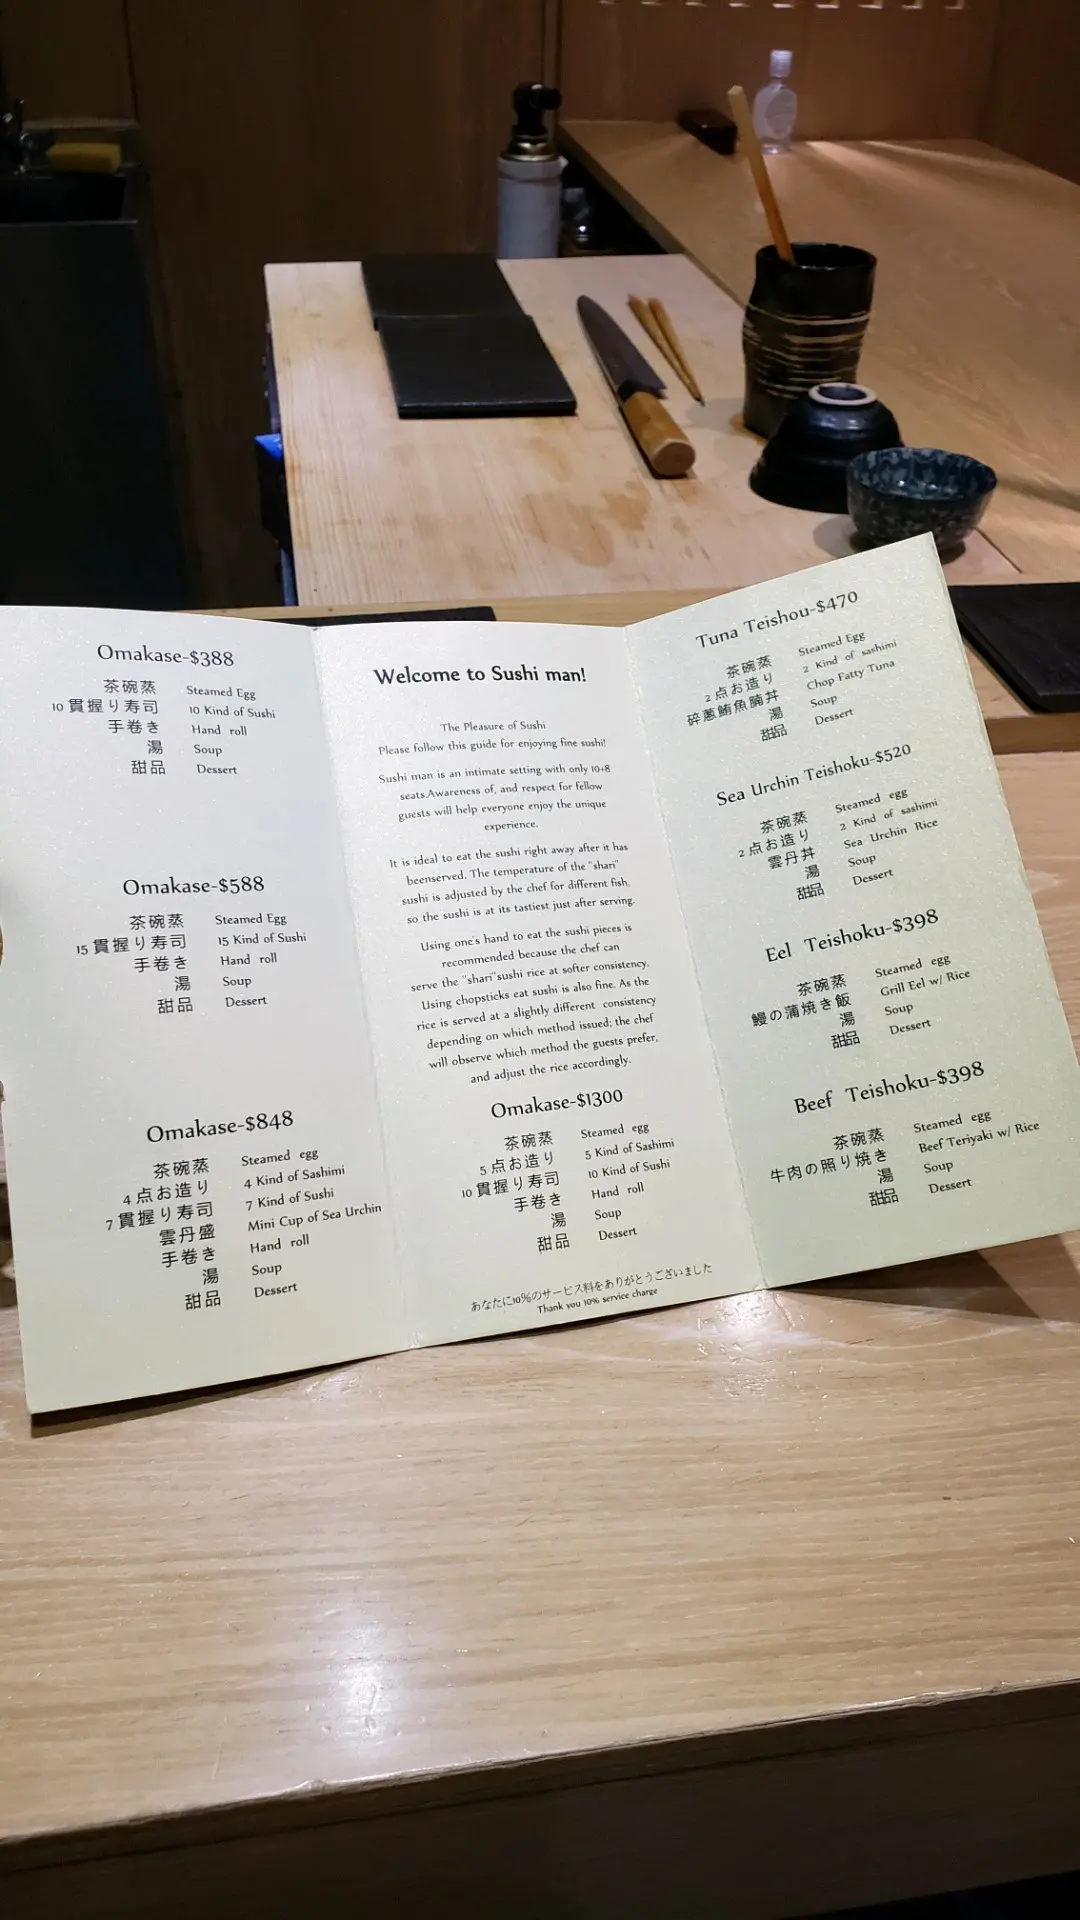 Omakase-$388
茶碗蒸 Steamed Egg
10 貫握り寿司 10 Kind of Sushi
手巻き Hand roll
湯 Soup
甜品 Dessert
Omakase-$588
茶碗蒸 Steamed Egg
15 貫握り寿司 15 Kind of Sushi
手巻き Hand roll
湯 Soup
甜品 Dessert
Omakase-$848
茶碗蒸 Steamed egg
4 点お造り 4 Kind of Sashimi
7 貫握り寿司 7 Kind of Sushi
雲丹盛 Mini Cup of Sea Urchin
手巻き Hand roll
湯 Soup
甜品 Dessert
Welcome to Sushi man!
The Pleasure of Sushi
Please follow this guide for enjoying fine sushi!
Sushi man is an intimate setting with only 10+8
seats.Awareness of, and respect for fellow
guests will help everyone enjoy the unique
experience.
It is ideal to eat the sushi right away after it has
beenserved. The temperature of the "shari"
sushi is adjusted by the chef for different fish,
so the sushi is at its tastiest just after serving.
Using one's hand to eat the sushi pieces is
recommended because the chef can
serve the "shari"sushi rice at softer consistency.
Using chopsticks eat sushi is also fine. As the
rice is served at a slightly different consistency
depending on which method issued; the chef
will observe which method the guests prefer,
and adjust the rice accordingly.
Omakase-$1300
茶碗蒸 Steamed egg
5 点お造り 5 Kind of Sashimi
10 貫握り寿司 10 Kind of Sushi
手巻き Hand roll
湯 Soup
甜品 Dessert
あなたに10%のサービス料をありがとうございました
Thank you 10% service charge
Tuna Teishou-$470
茶碗蒸 Steamed Egg
2 点お造り 2 Kind of sashimi
碎蔥鮪魚腩丼 Chop Fatty Tuna
湯 Soup
甜品 Dessert
Sea Urchin Teishoku-$520
茶碗蒸 Steamed egg
2 点お造り 2 Kind of sashimi
雲丹丼 Sea Urchin Rice
湯 Soup
甜品 Dessert
Eel Teishoku-$398
茶碗蒸 Steamed egg
鰻の蒲焼き飯 Grill Eel w/ Rice
湯 Soup
甜品 Dessert
Beef Teishoku-$398
茶碗蒸 Steamed egg
牛肉の照り焼き Beef Teriyaki w/ Rice
湯 Soup
甜品 Dessert